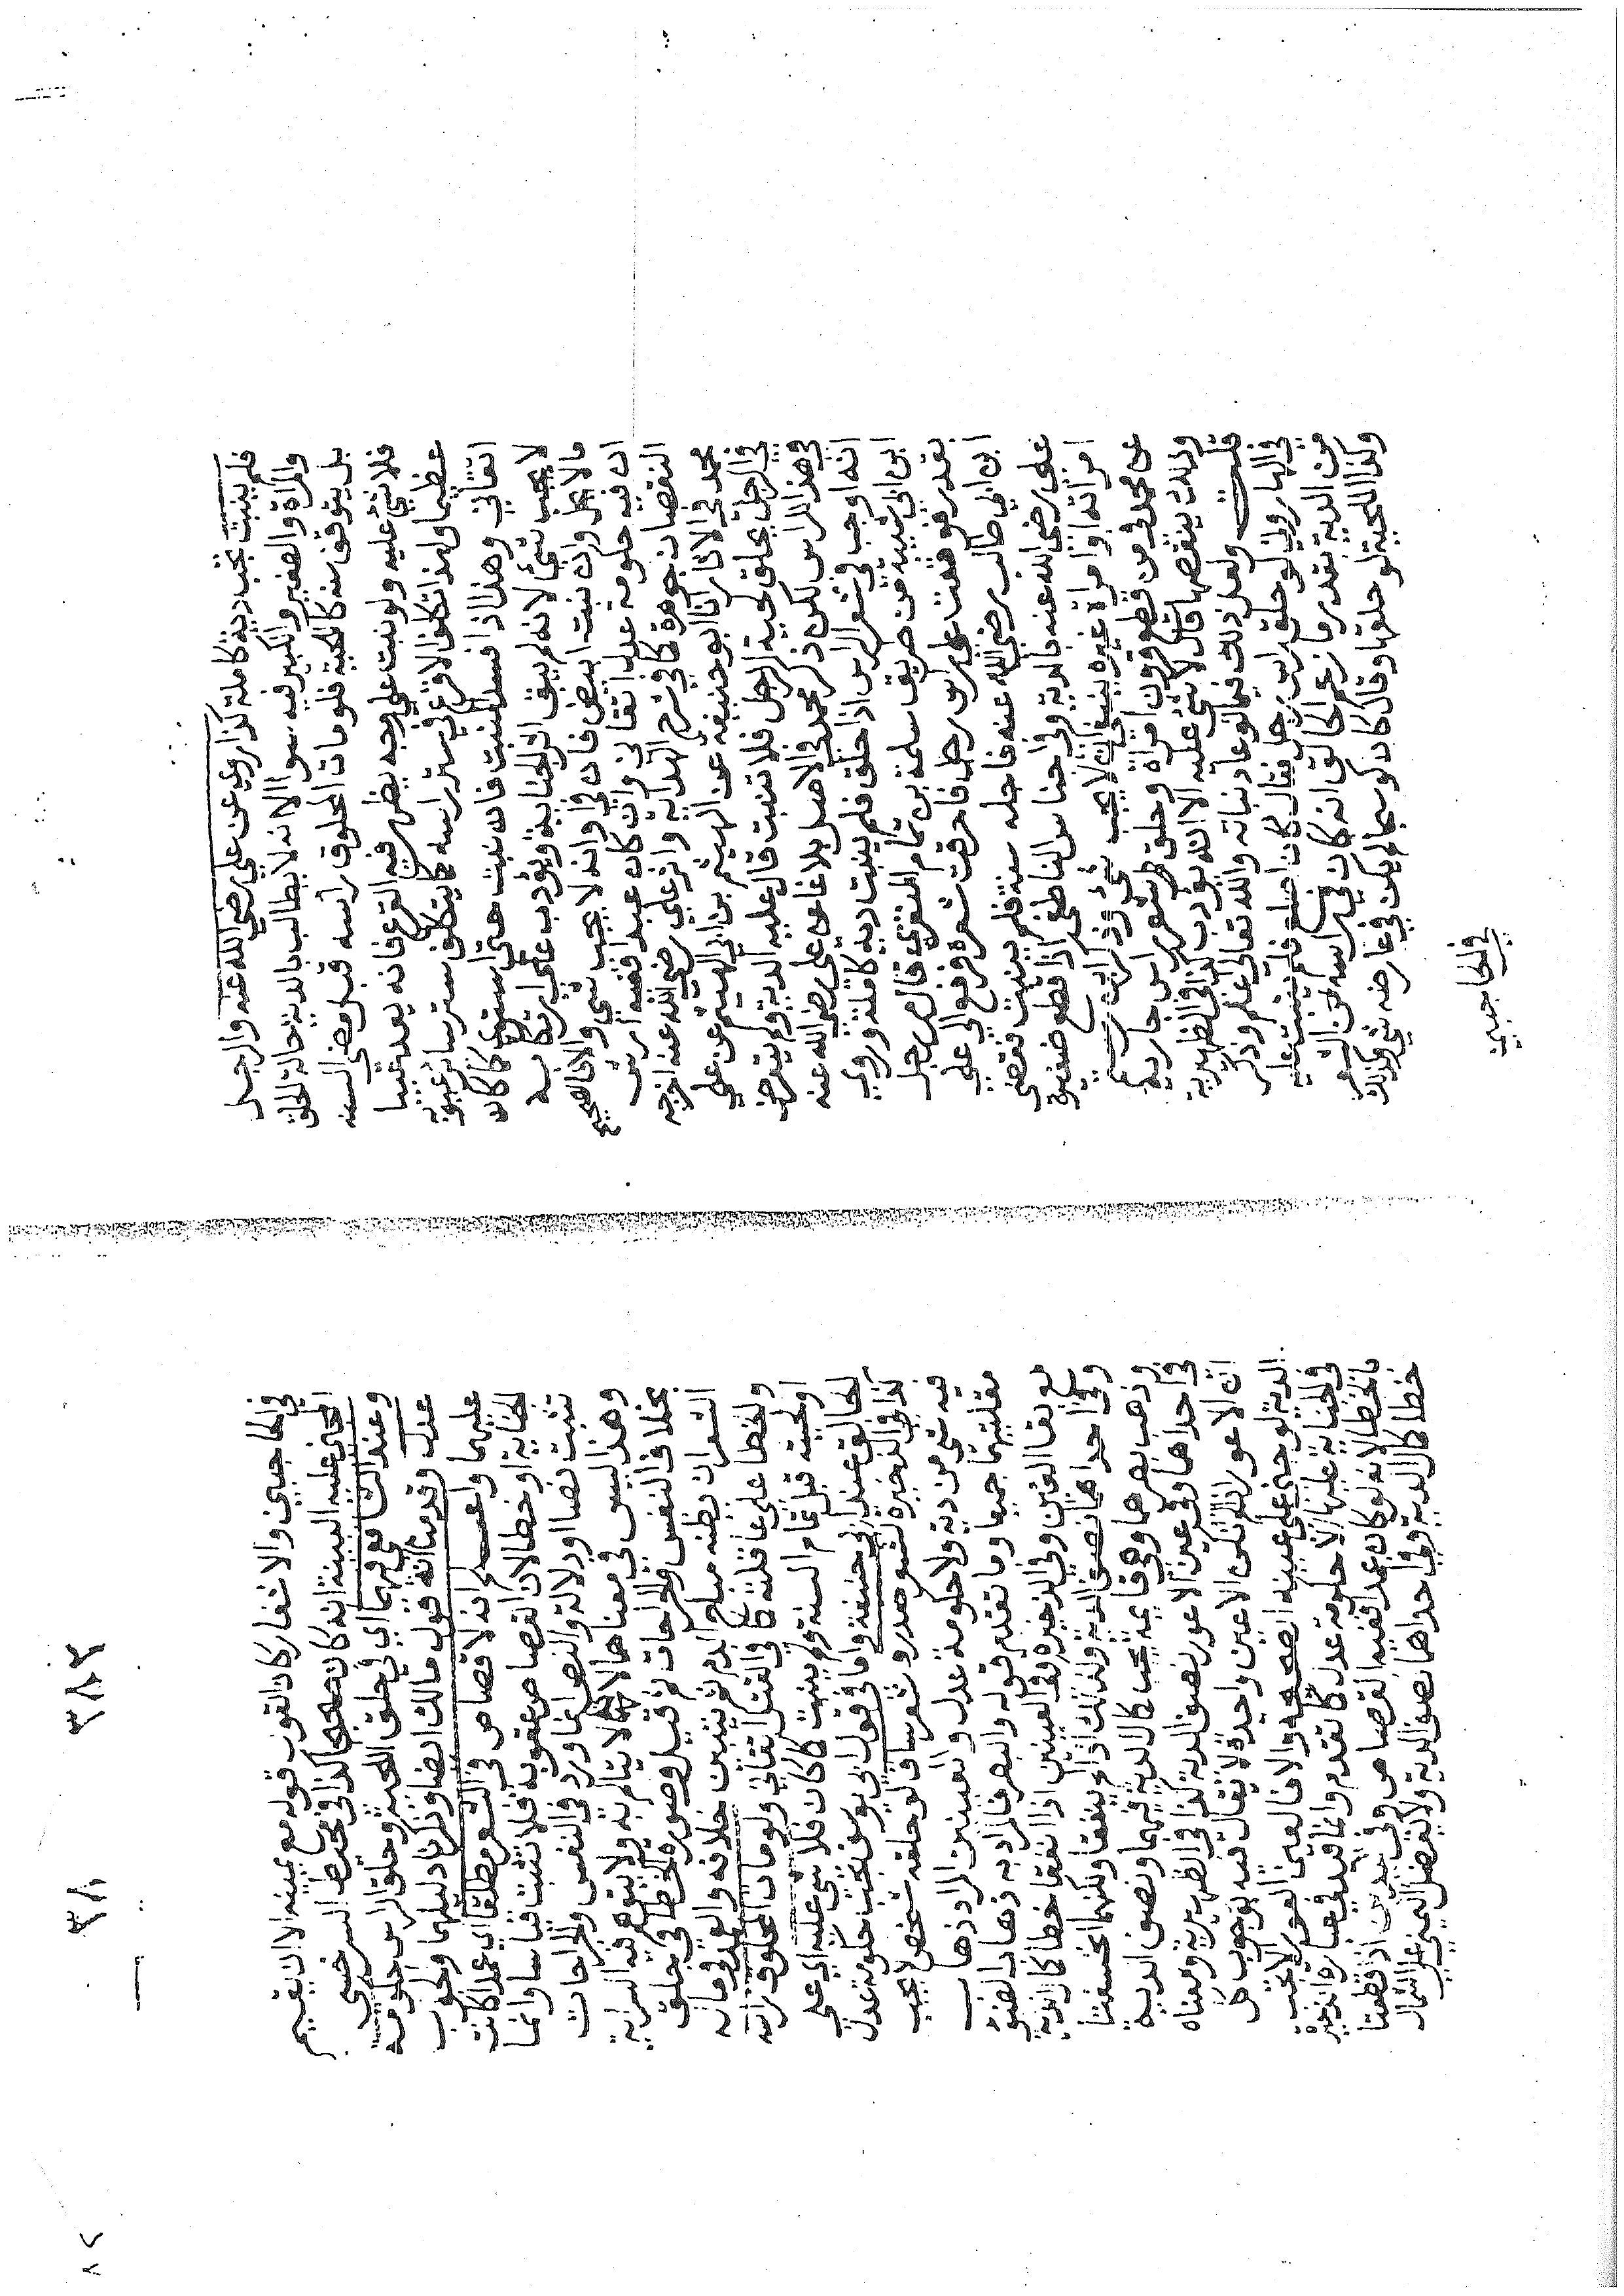 فلم ينبت تجب دية كاملة كذا روي عن علي رضي الله عنه والرجل
والمراة والصغير والكبير فيه سوا الا انه لا يطالب بالدية حالة الحلق
بل يتوقف سنه كاللحية فلو مات المحلوق راسه قبل مضي السنه
فلا شي عليه ولو نبت علي وجه يظهر فيه القرع فانه يعد عيبا
عظيما ولهذا تكلف الاقرع في ستر راسه كما يتكلف ستر سائر عيوبه
اتقاني وهذا اذا فسد المنبت فان نبت حتي استوي كما كان
لا يجب شي لانه لم يبق اثر الجناية ويؤدب علي ارتكابه
مالا يحل وان نبت ابيض فان في اوانه لا يجب شي والا فالصحيح
ان فيه حكومة عدل اتقاني وان كان عبدا ففيه ارش
النقصان جوهرة كما في شرح الهداية واثر علي رضي الله عنه اخرجه
محمد في الاثار انا ابو حنيفة عن الهيثم بن ابي الهيثم عن علي
في الرجل يحلق لحية الرجل فلا تنبت قال عليه الدية ولم يتعرض
في هذا للراس لكن ذكر محمد في الاصل بلاغا عن علي رضي الله عنه
انه اوجب في شعر الراس اذا حلق فلم ينبت دية كاملة وروي
ابن ابي شيبة من طريق سلمة بن تمام المنقري قال مر رجل
بقدر فوقعت علي راس رجل فاحرقت شعره فرفع الي علي
ابن ابي طالب رضي الله عنه فاجله سنة فلم ينبت فقضي
علي رضي الله عنه بالدية وفي اجناس الناطفي اذا قطع ضفيرة
امراته او امراة غيره ينبت لا يجب شي وذكر ابن رستم
عن محمد في من قطع قرون امراة وحلق شعر راس جارية
وذلك ينقصها قال لا شي عليه الا انه يؤدب كذا في الظهيرية
قلت ولعل ذلك فيما لو عاد نباته والله تعالي اعلم وذكر
في الهاروني لو حلق راس رجل فقال كان اصلع فلم ينبت عليه
من الدية بقدر ما زعم الحالق انه كان في راسه من الشعر
وكذا اللحية لو حلقها وقال كان كوسجا لم يكن في عارضه شي وكذلك
في الحاجبين
٣٨٣
٣٨
في الحاجبين والاشفار كان القول قوله مع يمينه الا ان يقيم
المجني عليه البينة انه كان صحيحا كذا في محيط السرخسي
وعند الشافعي فيهما اي في حلق اللحية وحلق الراس حكومة
عدل وقدمنا انه قول مالك ايضا وذكرنا دليلهما والجواب
عليهما واعلم انه لا قصاص في الشعر مطلقا اي عمدا كانت
الجناية او خطا لان القصاص عقوبة فلا تثبت قياسا وانما
تثبت نصا او دلالة والنص انما ورد في النفس والجراحات
وهذا ليس في معناهما لانه لا يتالم به ولا يتوهم فيه السراية
بخلاف النفس والجراحات ثم قيل وصورة الخطا في حلق
الشعر ان يظنه مباح الدم ثم يتبين خلافه والعمد في ماله
والخطا علي عاقلته كما في القتل اتقاني ولو مات المحلوق راسه
او لحيته قبل تمام السنة ولم ينبت كما كان فلا شي عليه اي علي
الحالق عند ابي حنيفة واما في قول ابي يوسف تجب حكومة عدل
كذا في الذخيرة لشعر صدر وشعر ساق لو حلقه شخص لا يجب
فيه شي من دية ولا حكومة عدل والعينين المراد ذهاب
مقلتيهما جميعا وما تقدم قوله والبصر فالمراد به ذهاب الضوء
مع بقا العين وفي الذخيرة وفي العينين اذا انفقا خطا كمال الدية
وفي احداهما نصف الدية وكذلك اذا لم ينفقا ولكنهما انخسفتا
وذهب بصرهما وهي قائمة تجب كمال الدية فيهما ونصف الدية
في احداهما وفي عين الاعور نصف الدية كذا في الظهيرية ومعناه
ان الاعور الذي له عين واحدة لا يقال فيه بوجوب كل
الدية لو جني علي عينه الصحيحة والا فالعين العوراء لا يجب
في الجناية عليها الا حكومة عدل كما تقدم وانما قيد في عبارة الذخيرة
بالخطا لانه لو كان عمدا ففيه القصاص وفي يدين اذا قطعتا
خطا كمال الدية وفي احداهما نصف الدية ولا يفضل اليمني علي الشمال